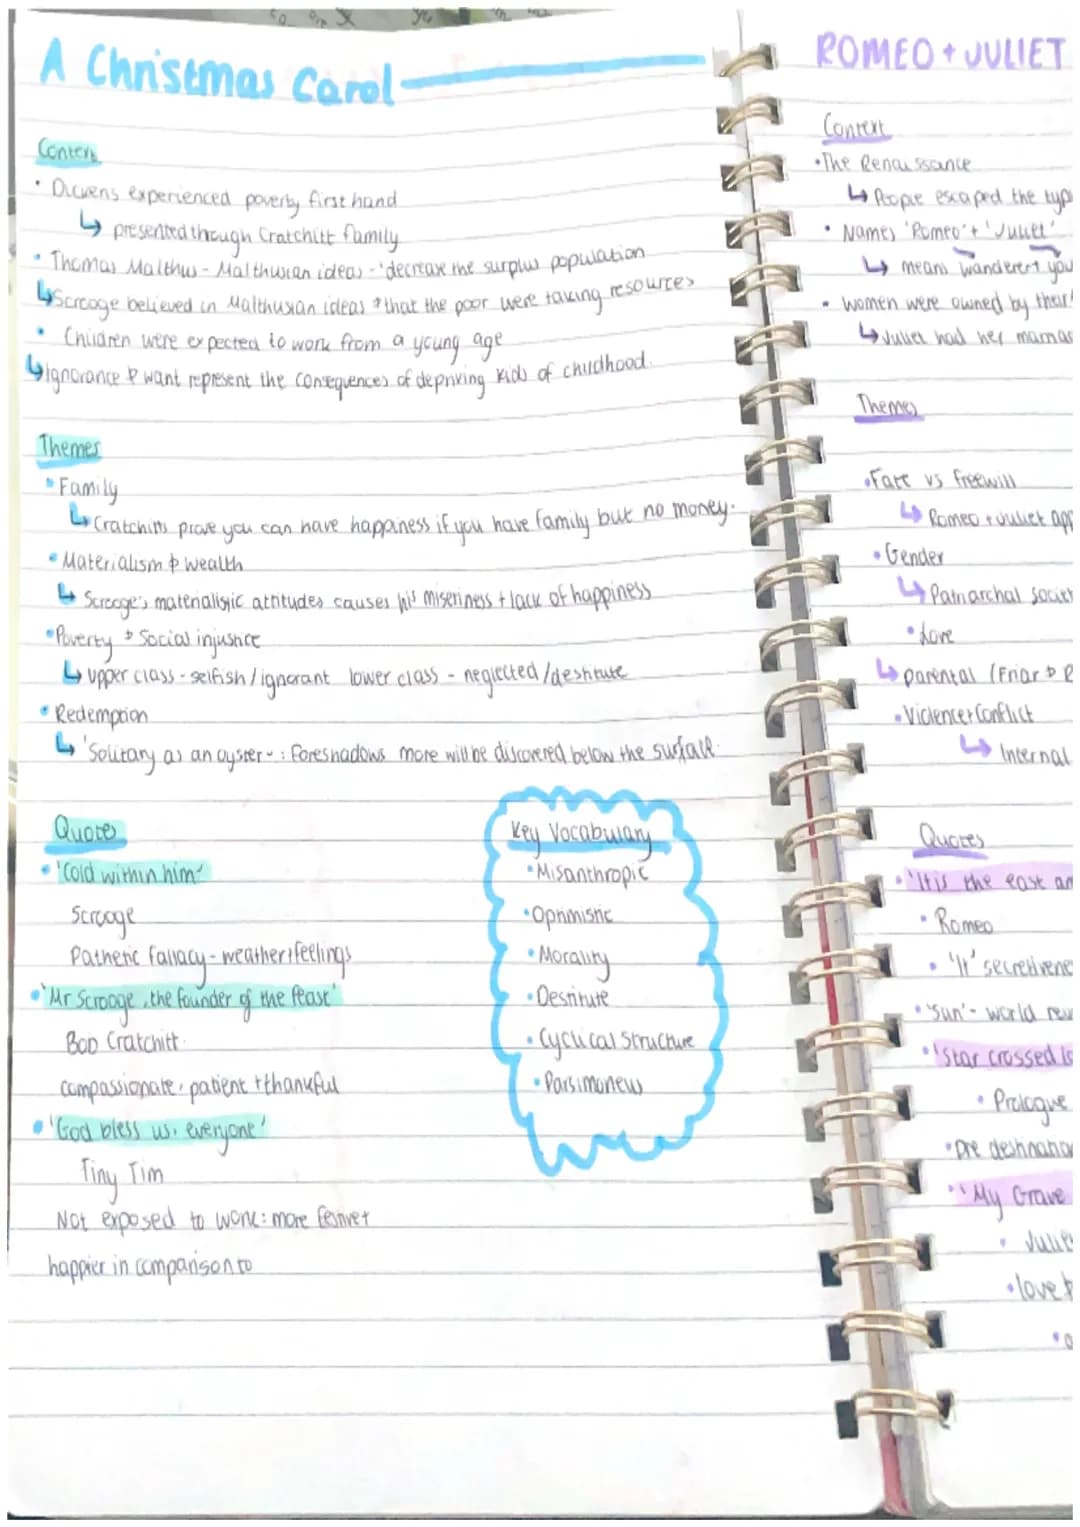 A Christmas Carol
Context
• Dickens experienced poverty first hand
↳ presented through Cratchitt family
• Thomas Malthus - Malthusian ideas - 'decrease the surplus population
↳ Scrooge believed in Malthusian ideas & that the poor were taking resources
• Children were expected to work from a young age
↳ ignorance & want represent the consequences of depriving kids of childhood.
Themes
• Family
↳ Cratchitts prove you can have happiness if you have family but no money.
• Materialism & wealth
↳ Scrooge's materialistic attitudes causes his miseriness + lack of happiness
• Poverty & Social injustice
↳ upper class - selfish/ignorant lower class - neglected/destitute
• Redemption
↳ 'Solitary as an oyster': foreshadows more will be discovered below the surface.
Quotes
• 'Cold within him'
Scrooge
Pathetic fallacy - weather + feelings
• 'Mr Scrooge, the founder of the feast'
Bob Cratchitt
compassionate, patient + thankful
• 'God bless us, everyone'
Tiny Tim
Not exposed to work: more festive +
happier in comparison to
Key Vocabulary
• Misanthropic
• Optimistic
• Morality
• Destitute
• Cyclical Structure
• Parsimonew
ROMEO + JULIET
Context
• The Renaissance
↳ People escaped the typ
• Names 'Romeo' + 'Juliet'
↳ means wanderer + you
• women were owned by their
↳ Juliet had her marria
Themes
• Fate vs freewill
↳ Romeo + Juliet app
• Gender
↳ Patriarchal societ
• Love
↳ parental (Friar & R
• Violence + Conflict
↳ Internal
Quotes
• 'It is the east an
• Romeo
• 'It' secretivene
• 'Sun' - world rev
• 'star crossed lo
• Prologue
• pre destination
• 'My Grave
• Juliet
• love &